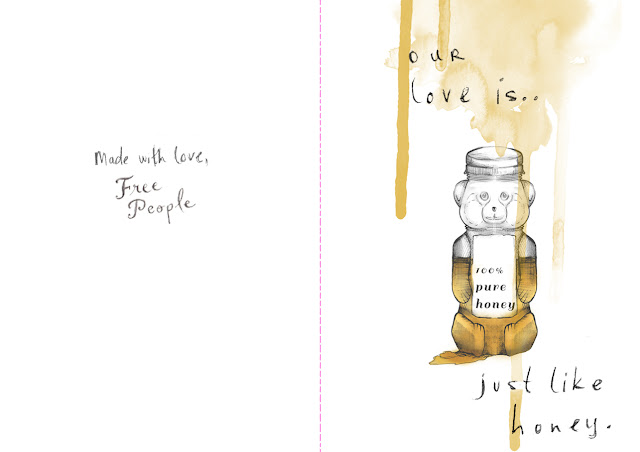 Made with love,
Free
People
our
love is..
100%
pure
honey
just like
honey.